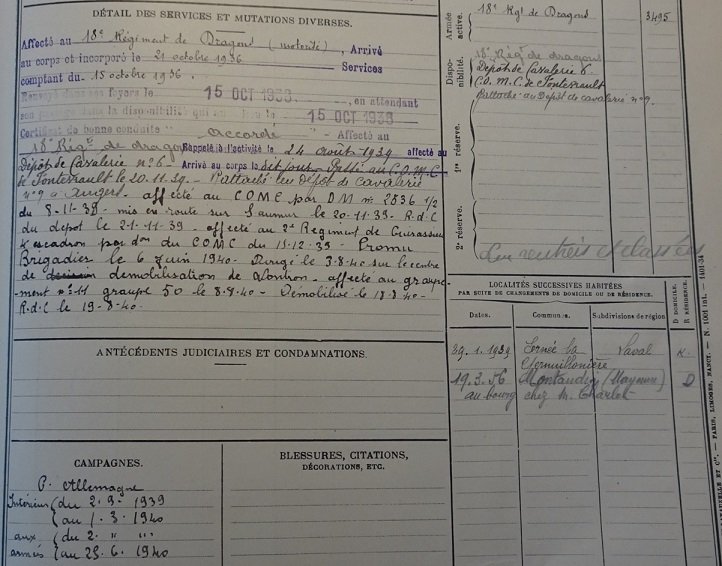 DÉTAIL DES SERVICES ET MUTATIONS DIVERSES.
Affecté au 18e Régiment de Dragons (motorisé), Arrivé
au corps et incorporé le 21 octobre 1936 Services
comptant du 15 octobre 1936.
Renvoyé dans ses foyers le 15 OCT 1938, en attendant
son passage dans la disponibilité qui 15 OCT 1938
Certificat de bonne conduite "accordé" - Affecté au
18e Régt de dragons Rappelé à l'activité le 24 août 1939 affecté au
Dépôt de Cavalerie n° 6 - Arrivé au corps le dit jour Passé au C.O.M.C
de Fontevrault le 20.11.39 - Rattaché au Dépôt de cavalerie
n° 9 à Angers - affecté au COMC par DM n° 2836 1/2
du 8-11-39 - mis en route sur Saumur le 20-11-39 - R.d.C
du dépot le 21-11-39 - affecté au 2e Régiment de Cuirassiers
4 escadron par don du COMC du 15.12.39 - Promu
Brigadier le 6 Juin 1940 - Dirigé le 3.8.40 sur le centre
de demobilisation de - affecté au groupe-
ment n° 11 groupe 50 le 8.8.40 - Démobilisé le 18.8.40 -
R.d.C le 19-8-40 -
ANTÉCÉDENTS JUDICIAIRES ET CONDAMNATIONS.
CAMPAGNES.
C. Allemagne
Intérieur (du 2-9-1939
(au 1.3.1940
aux (du 2. " "
armées (au 25.6.1940
BLESSURES, CITATIONS,
DÉCORATIONS, ETC.
Armée
active.
18e Rgt de Dragons
3495
Dispo-
nibilité.
18e Régt de dragons
Dépôt de Cavalerie 6
C.O.M.C. de Fontevrault
Rattaché au Dépôt de cavalerie n° 9.
1re réserve.
2e réserve.
LOCALITÉS SUCCESSIVES HABITÉES
PAR SUITE DE CHANGEMENTS DE DOMICILE OU DE RÉSIDENCE.
Dates.
Communes.
Subdivisions de région
D DOMICILE.
R RÉSIDENCE.
1939 Ernée la Laval R.
19.3.56 Montaudin (Mayenne) D
au bourg chez M.
PARIS, LIMOGES, NANCY. - N. 1001 int. - 1401-34